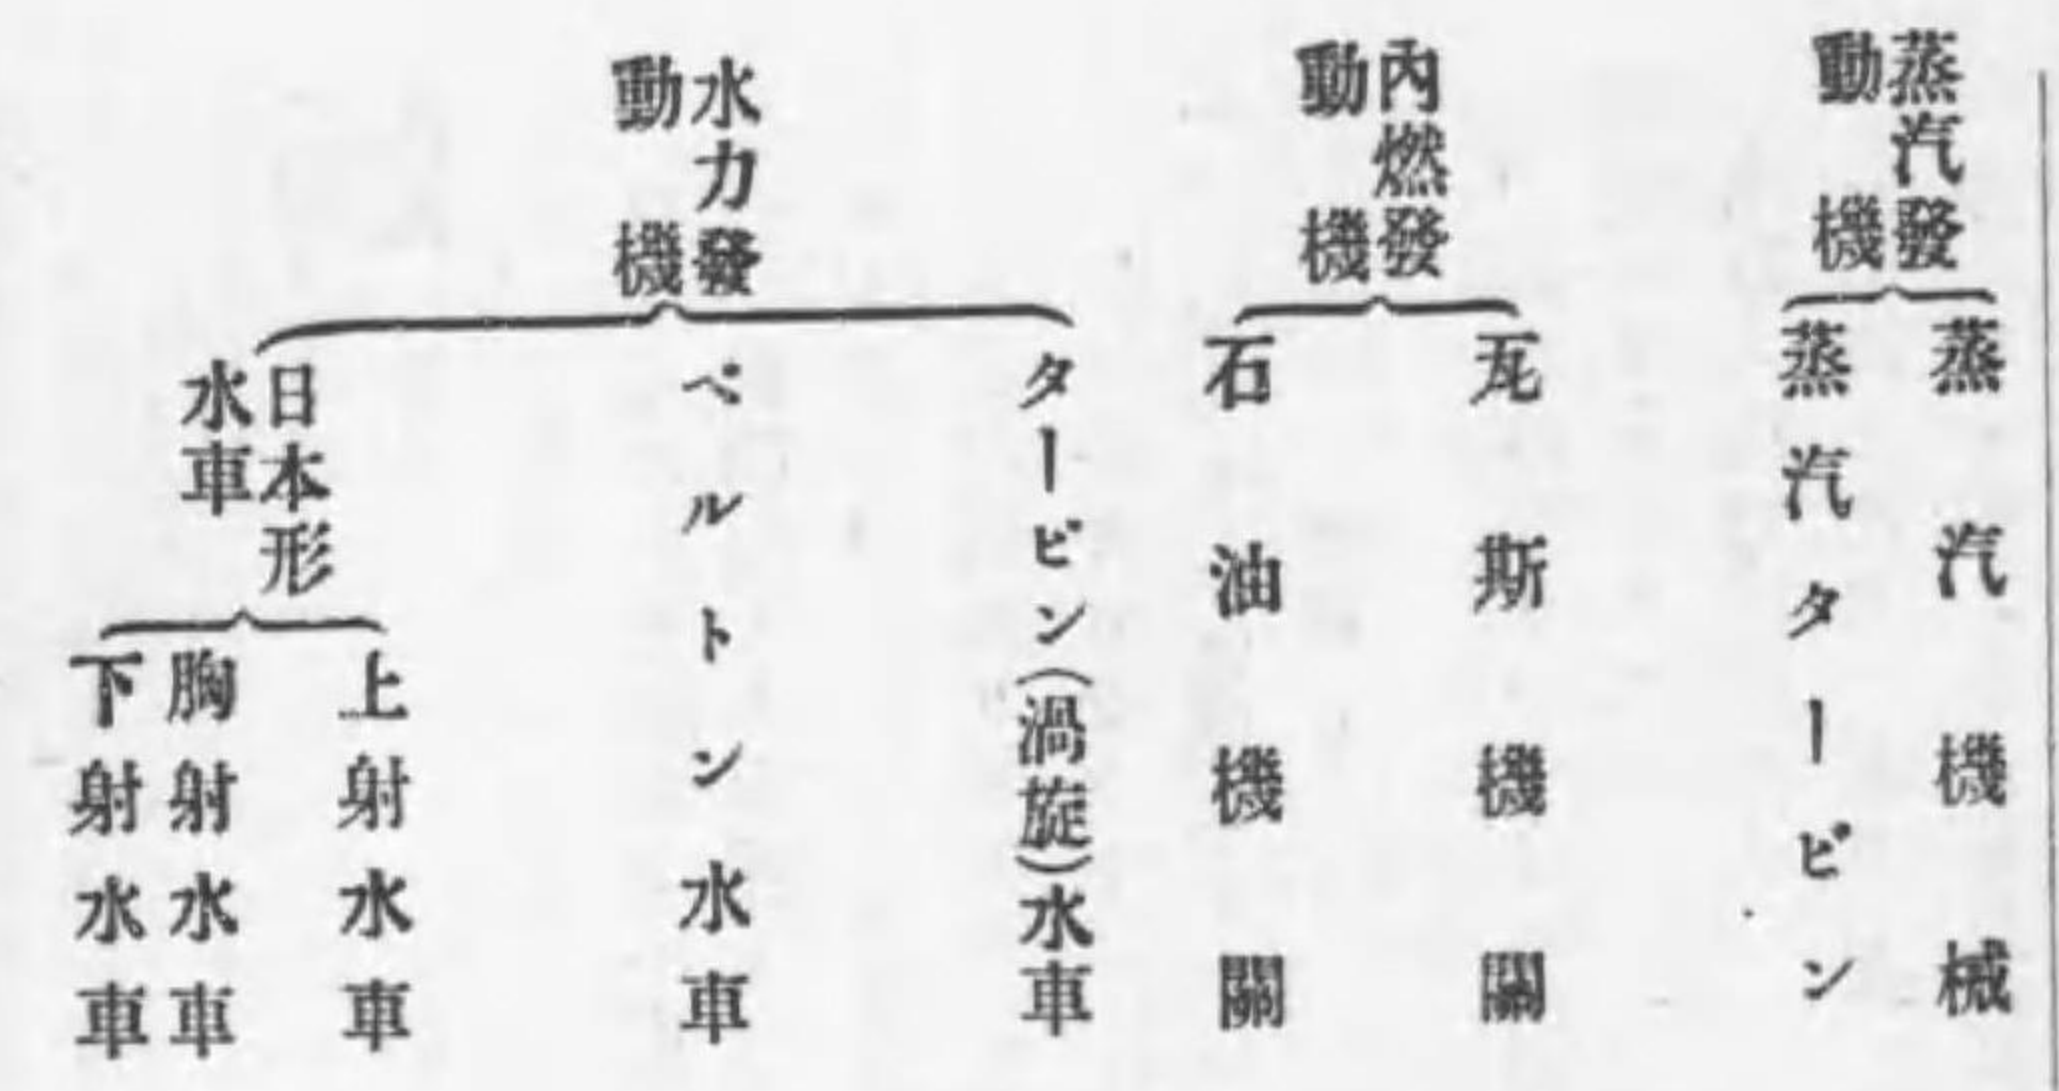 蒸汽發
動機
蒸汽機械
蒸汽タービン
內燃發
動機
瓦斯機關
石油機關
水力發
動機
タービン(渦旋)水車
ペルトン水車
日本形
水車
上射水車
胸射水車
下射水車